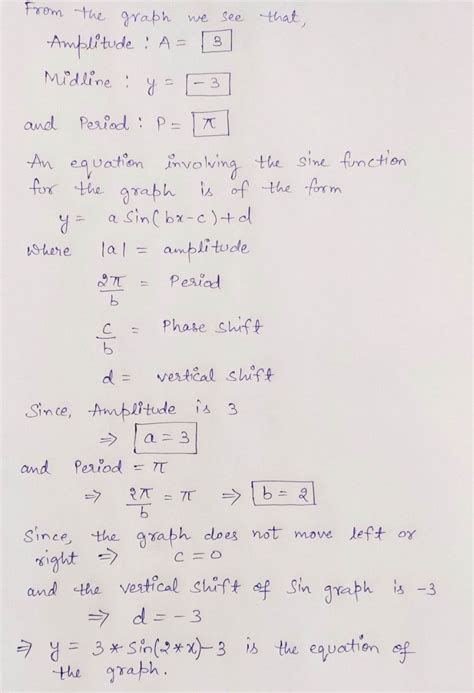 From the graph we see that,
Amplitude : A = 3
Midline : y = -3
and Period : P = π
An equation involving the sine function
for the graph is of the form
y = a sin(bx-c)+d
where |a| = amplitude
2π/b = Period
c/b = Phase shift
d = vertical shift
Since, Amplitude is 3
⇒ a = 3
and Period = π
⇒ 2π/b = π ⇒ b = 2
Since, the graph does not move left or
right ⇒ c = 0
and the vertical shift of Sin graph is -3
⇒ d = -3
⇒ y = 3*Sin(2*x)-3 is the equation of
the graph.